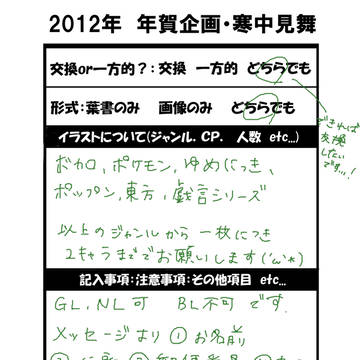 2012年 年賀企画・寒中見舞
交換or一方的?: 交換 一方的 どちらでも
できれば
交換
したい
です…!
形式: 葉書のみ 画像のみ どちらでも
イラストについて(ジャンル. CP. 人数 etc...)
ボカロ, ポケモン, ゆめにっき,
ポップン, 東方, 戯言シリーズ
以上のジャンルから 一枚につき
2キャラまででお願いします(´ω`*)
記入事項:注意事項:その他項目 etc...
GL, NL可 BL不可 です.
メッセージより ① お名前